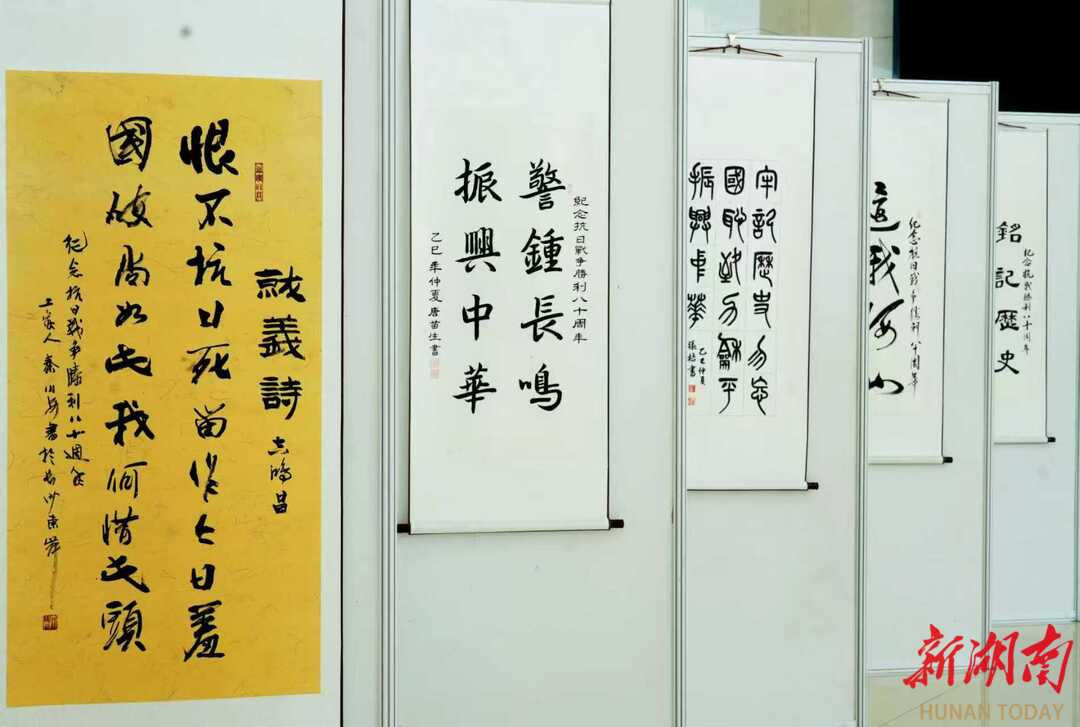 就義詩 吉鴻昌
恨不抗日死留作今日羞
國破尚如此我何惜此頭
纪念抗日战争勝利八十週年
土家人 書於長沙
紀念抗日戰爭勝利八十周年
警鍾長鳴
振興中華
乙巳年仲夏唐苗生書
牢記歷史勿忘
國耻致力龢平
振興中華
乙巳仲夏
纪念抗日战争胜利八十周年
還我河山
纪念抗战勝利八十周年
銘記歷史
新湖南
HUNAN TODAY